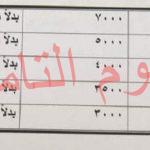 ٧٠٠٠ بدلاً
٥٠٠٠ بدلاً
٤٠٠٠ بدلاً
٣٥٠٠ بدلاً
٣٠٠٠ بدلاً
وم التاس